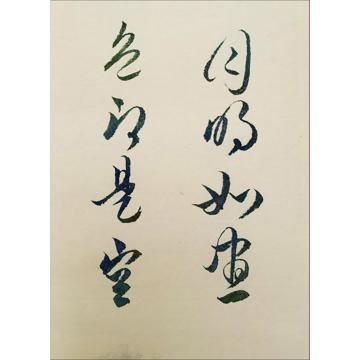 月明如
色即是空